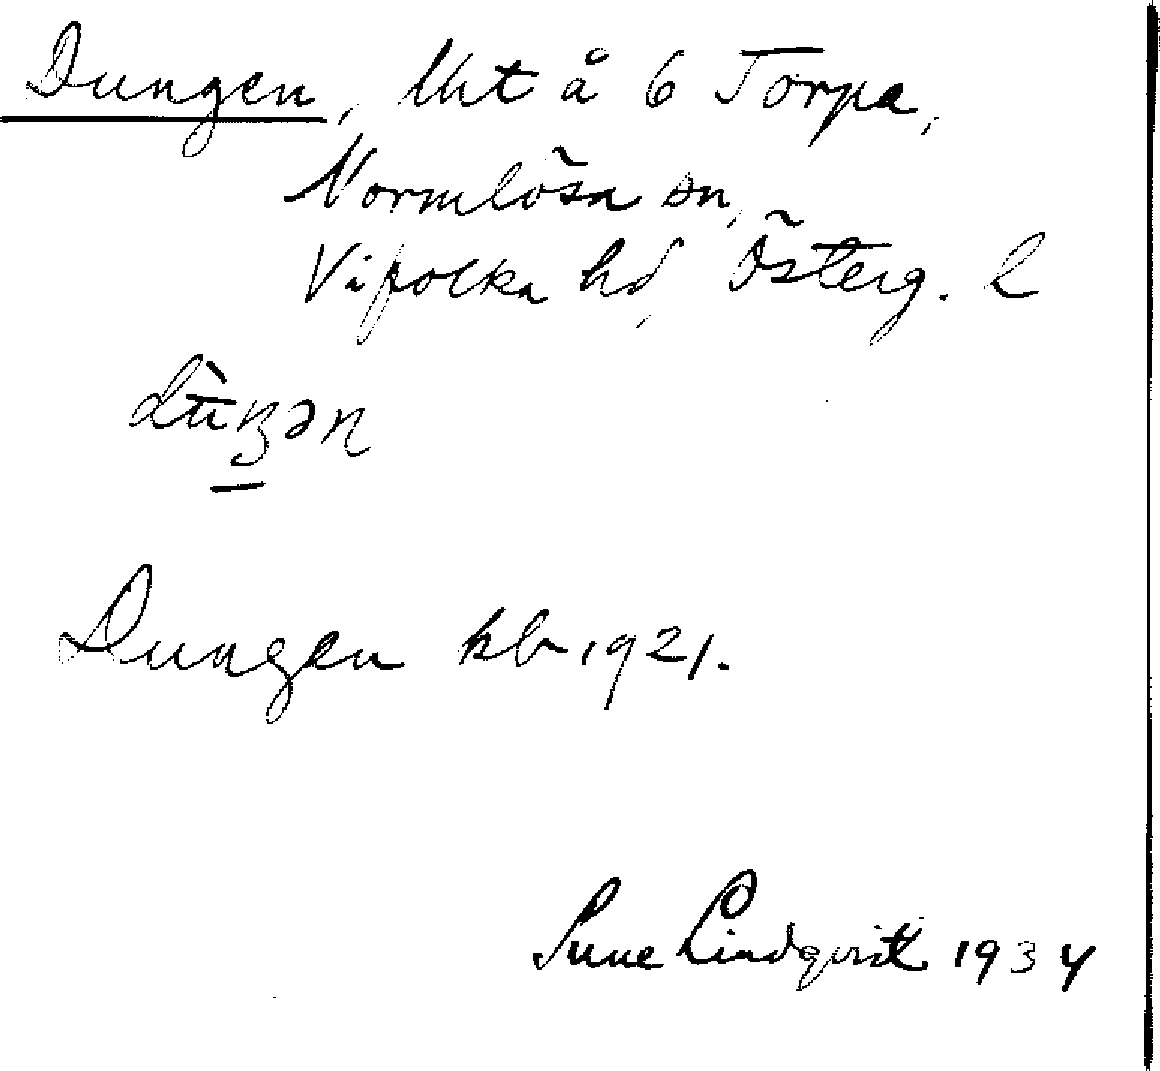 Dungen, lht å 6 Torpa,
Normlösa sn,
Vifolka hd, Österg. l
Dungen kb 1921.
Sune Lindqvist 1934